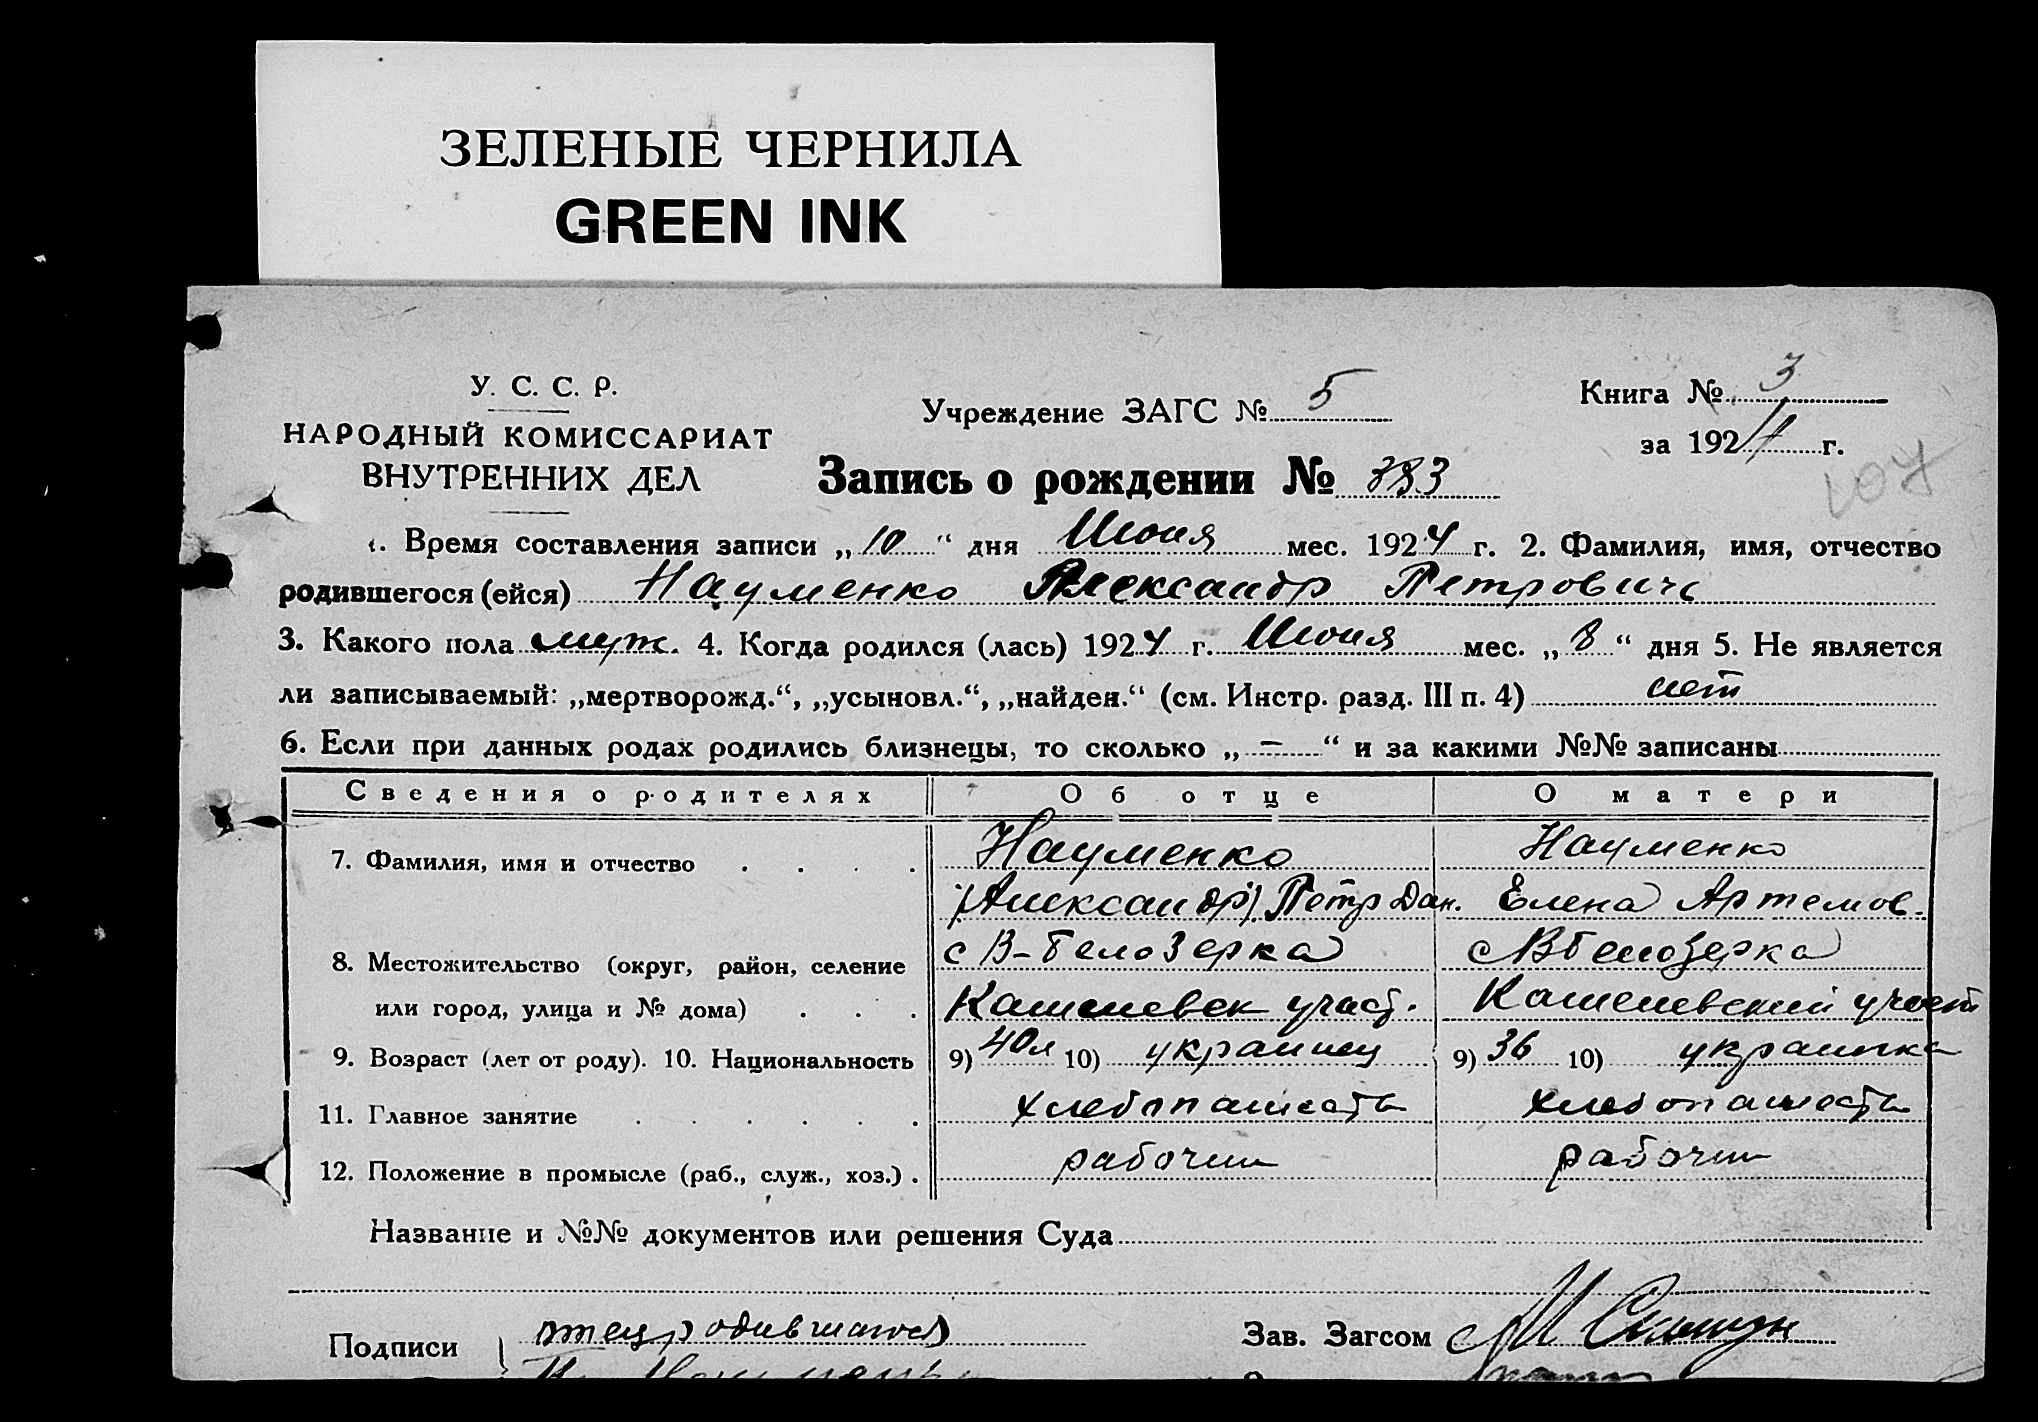 ЗЕЛЕНЫЕ ЧЕРНИЛА
GREEN INK
У. С. С. Р.
НАРОДНЫЙ КОМИССАРИАТ
ВНУТРЕННИХ ДЕЛ
Учреждение ЗАГС № 5
Книга № 3
за 1924 г.
107
Запись о рождении № 383
1. Время составления записи „10“ дня Июня мес. 1924 г. 2. Фамилия, имя, отчество
родившегося (ейся) Науменко Александр Петрович
3. Какого пола муж. 4. Когда родился (лась) 1924 г. Июня мес. „8“ дня 5. Не является
ли записываемый: „мертворожд.“, „усыновл.“, „найден.“ (см. Инстр. разд. III п. 4) нет
6. Если при данных родах родились близнецы, то сколько „—“ и за какими №№ записаны
Сведения о родителях Об отце О матери
7. Фамилия, имя и отчество Науменко Науменко
(Александр) Петр Дан. Елена Артемов.
8. Местожительство (округ, район, селение с В-Белозерка с В Белозерка
или город, улица и № дома) участ.
9. Возраст (лет от роду). 10. Национальность 9) 40 л 10) украинец 9) 36 10) украинка
11. Главное занятие хлебопашеств хлебопашеств
12. Положение в промысле (раб., служ., хоз.) рабочий рабочий
Название и №№ документов или решения Суда
Подписи отец родившагося Зав. Загсом